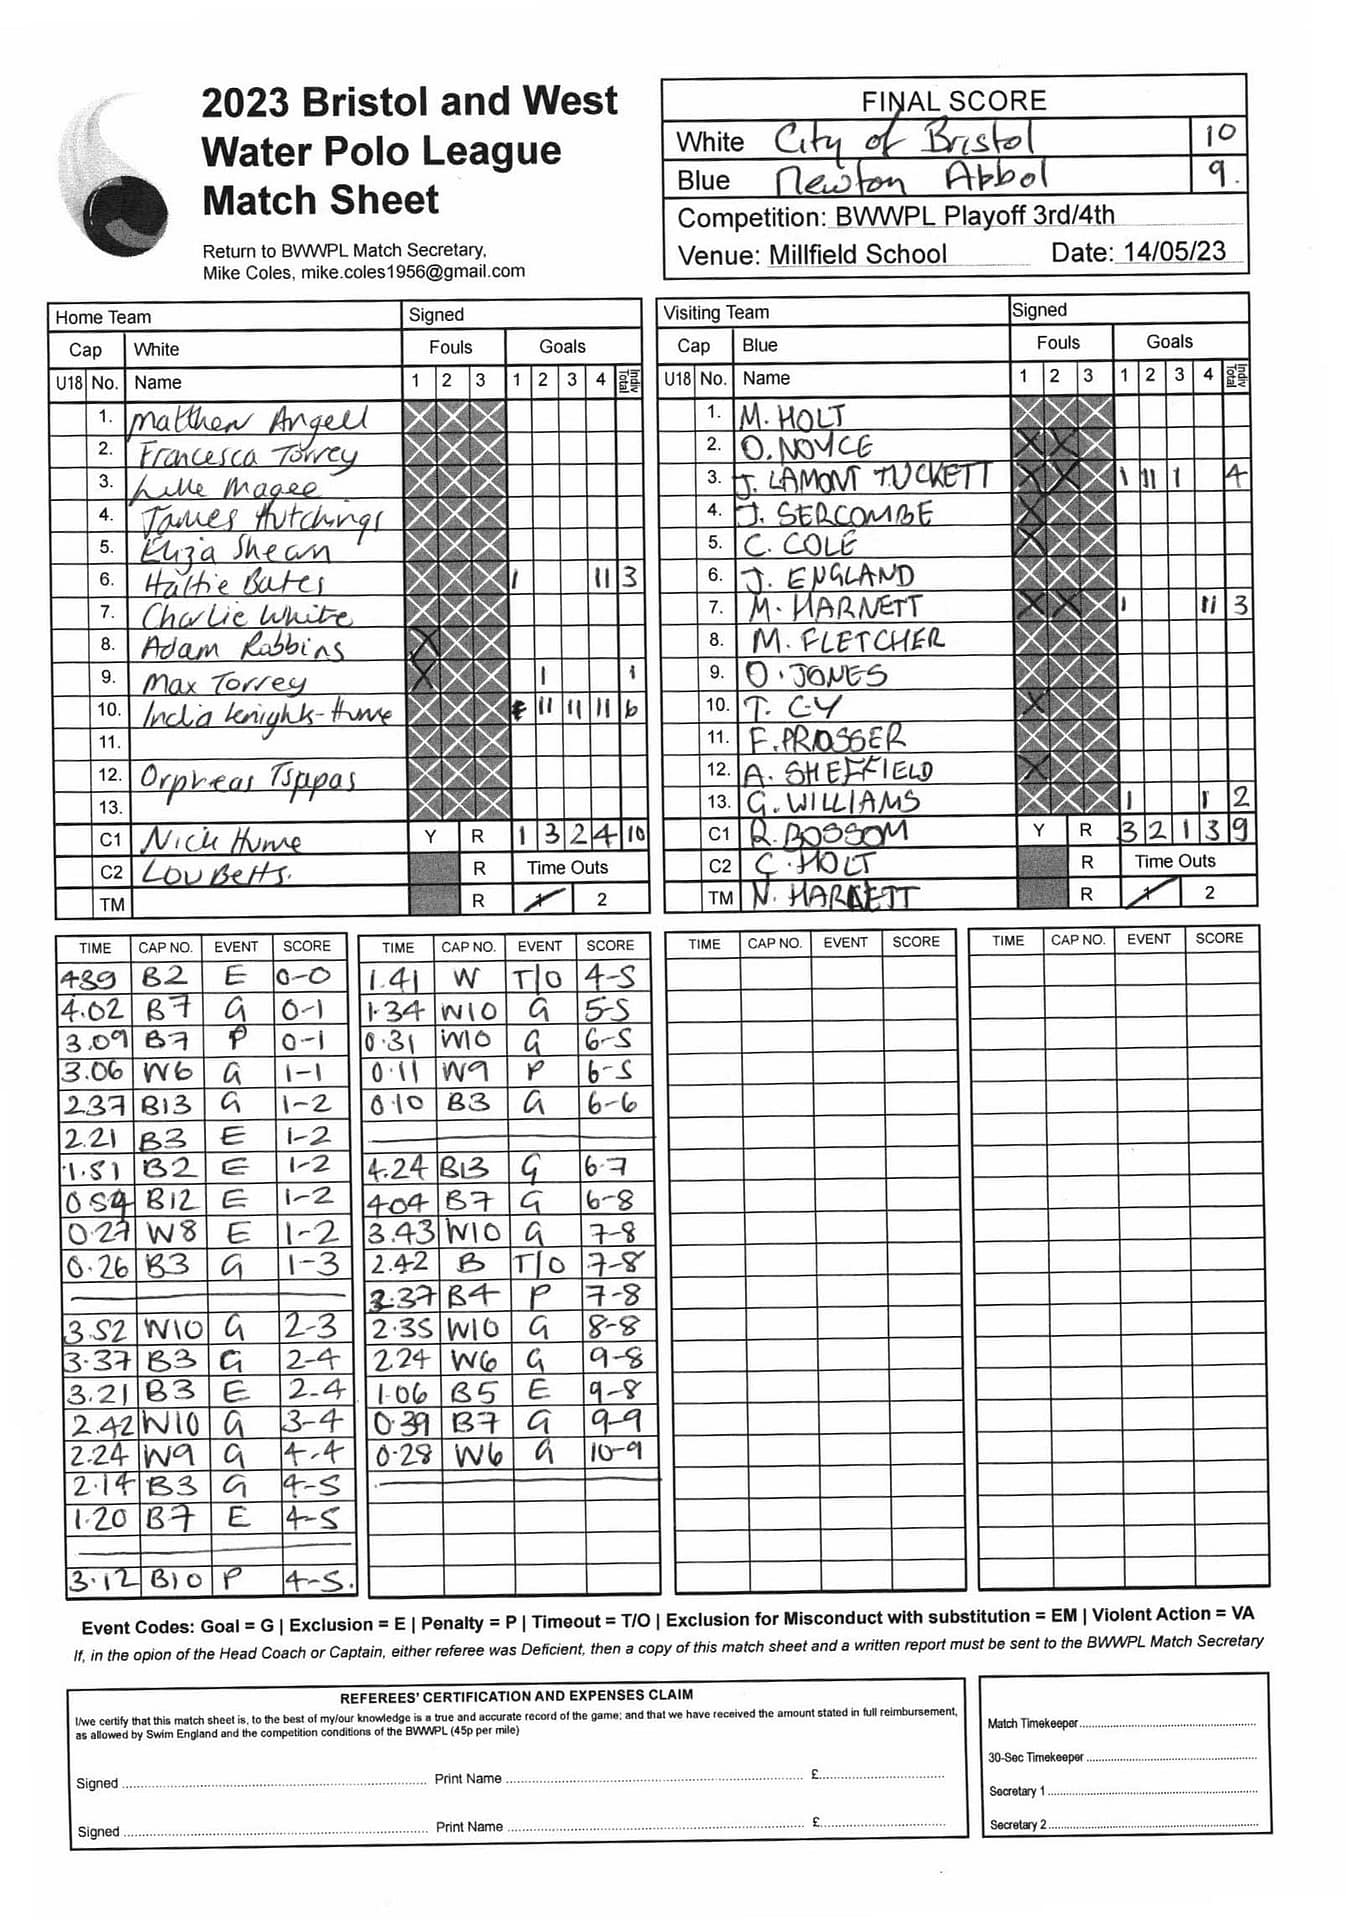 2023 Bristol and West
Water Polo League
Match Sheet
Return to BWWPL Match Secretary,
Mike Coles, mike.coles1956@gmail.com
FINAL SCORE
White City of Bristol 10
Blue Newton Abbol 9.
Competition: BWWPL Playoff 3rd/4th
Venue: Millfield School Date: 14/05/23
Home Team Signed
Cap White Fouls Goals
U18 No. Name 1 2 3 1 2 3 4 Indiv Total
1. Matthew Angell
2. Francesca Torrey
3. Luke Magee
4. James Hutchings
5. Eliza Shean
6. Hattie Bates 1 11 3
7. Charlie White
8. Adam Robbins X
9. Max Torrey X 1 1
10. India Knights-Hume 11 11 11 6
11.
12. Orpheas Tsappas
13.
C1 Nick Hume Y R 1 3 2 4 10
C2 Lou Betts. R Time Outs
TM R 1 2
Visiting Team Signed
Cap Blue Fouls Goals
U18 No. Name 1 2 3 1 2 3 4 Indiv Total
1. M. HOLT
2. O. NOYCE X X
3. J. LAMONT TUCKETT X X 1 11 1 4
4. J. SERCOMBE X
5. C. COLE X
6. J. ENGLAND
7. M. HARNETT X X 1 11 3
8. M. FLETCHER
9. O. JONES
10. T. CY X
11. F. PROSSER
12. A. SHEFFIELD X
13. G. WILLIAMS 1 1 2
C1 R. BOSSOM Y R 3 2 1 3 9
C2 C. HOLT R Time Outs
TM N. HARNETT R 1 2
TIME CAP NO. EVENT SCORE
4.39 B2 E 0-0
4.02 B7 G 0-1
3.09 B7 P 0-1
3.06 W6 G 1-1
2.37 B13 G 1-2
2.21 B3 E 1-2
1.51 B2 E 1-2
0.54 B12 E 1-2
0.27 W8 E 1-2
0.26 B3 G 1-3
3.52 W10 G 2-3
3.37 B3 G 2-4
3.21 B3 E 2-4
2.42 W10 G 3-4
2.24 W9 G 4-4
2.14 B3 G 4-5
1.20 B7 E 4-5
3.12 B10 P 4-5.
TIME CAP NO. EVENT SCORE
1.41 W T/O 4-5
1.34 W10 G 5-5
0.31 W10 G 6-5
0.11 W9 P 6-5
0.10 B3 G 6-6
4.24 B13 G 6-7
4.04 B7 G 6-8
3.43 W10 G 7-8
2.42 B T/O 7-8
2.37 B4 P 7-8
2.35 W10 G 8-8
2.24 W6 G 9-8
1.06 B5 E 9-8
0.39 B7 G 9-9
0.28 W6 G 10-9
TIME CAP NO. EVENT SCORE
TIME CAP NO. EVENT SCORE
Event Codes: Goal = G | Exclusion = E | Penalty = P | Timeout = T/O | Exclusion for Misconduct with substitution = EM | Violent Action = VA
If, in the opion of the Head Coach or Captain, either referee was Deficient, then a copy of this match sheet and a written report must be sent to the BWWPL Match Secretary
REFEREES' CERTIFICATION AND EXPENSES CLAIM
I/we certify that this match sheet is, to the best of my/our knowledge is a true and accurate record of the game; and that we have received the amount stated in full reimbursement,
as allowed by Swim England and the competition conditions of the BWWPL (45p per mile)
Signed Print Name £
Signed Print Name £
Match Timekeeper
30-Sec Timekeeper
Secretary 1
Secretary 2